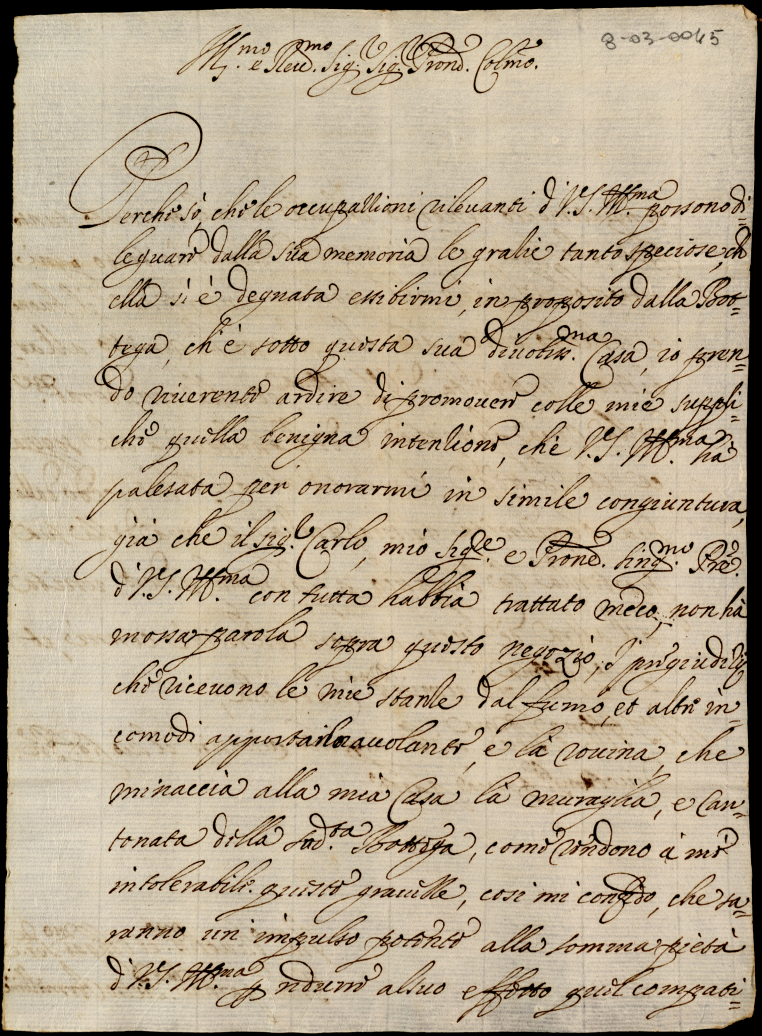 8-03-0045
Ill.mo e Reu.mo Sig.r Sig.r Pron. Colmo.
Perche sò, che le occupationi rileuanti d'V.S. Ill.ma possono di=
leguare dalla sua memoria le gratie tanto speciose, ch'
ella si è degnata essibirmi, in proposito dalla Bot=
tega, ch'è sotto questa sua diuotiss.ma Casa, io pren=
do riuerente ardire di promouere colle mie suppli=
che quella benigna intentione, che V.S. Ill.ma hà
palesata per onorarmi in simile congiuntura,
già che il sig.r Carlo, mio sig.re e Pron. sing.mo Pre.
d'V.S. Ill.ma con tutto habbia trattato meco, non hà
mossa parola sopra questo negozio, I pregiuditij
che riceuono le mie stanze dal fumo, et altri in=
comodi apporta, e la rouina, che
minaccia alla mia Casa la muraglia, e Can=
tonata della sud.ta Bottega, come rendono à me
intolerabili queste grauezze, così mi confido, che sa=
ranno un impulso potente alla somma pietà
d'V.S. Ill.ma p indurre al suo effetto quel compati=